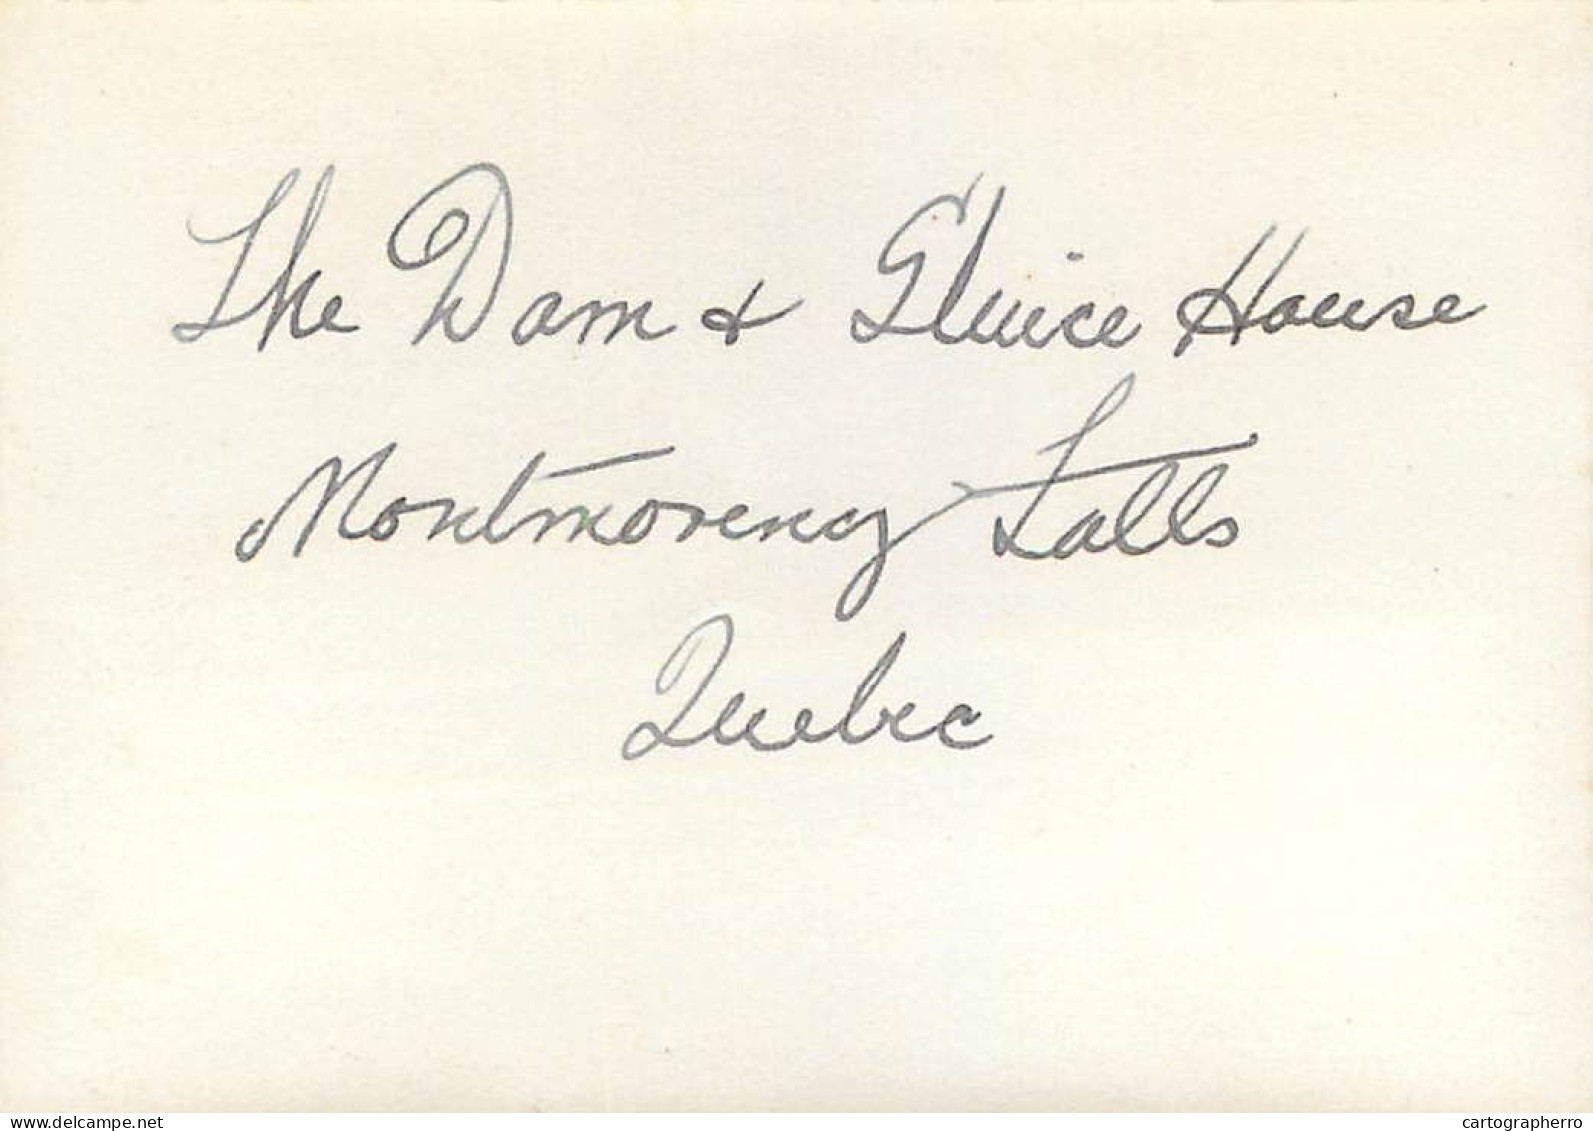 The Dam & Sluice House
Montmorency Falls
Quebec
delcampe.net
cartographerro